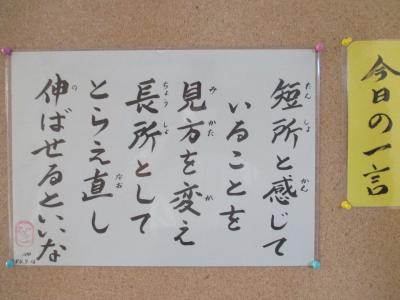 今日の一言
短所と感じて
いることを
見方を変え
長所として
とらえ直し
伸ばせるといいな